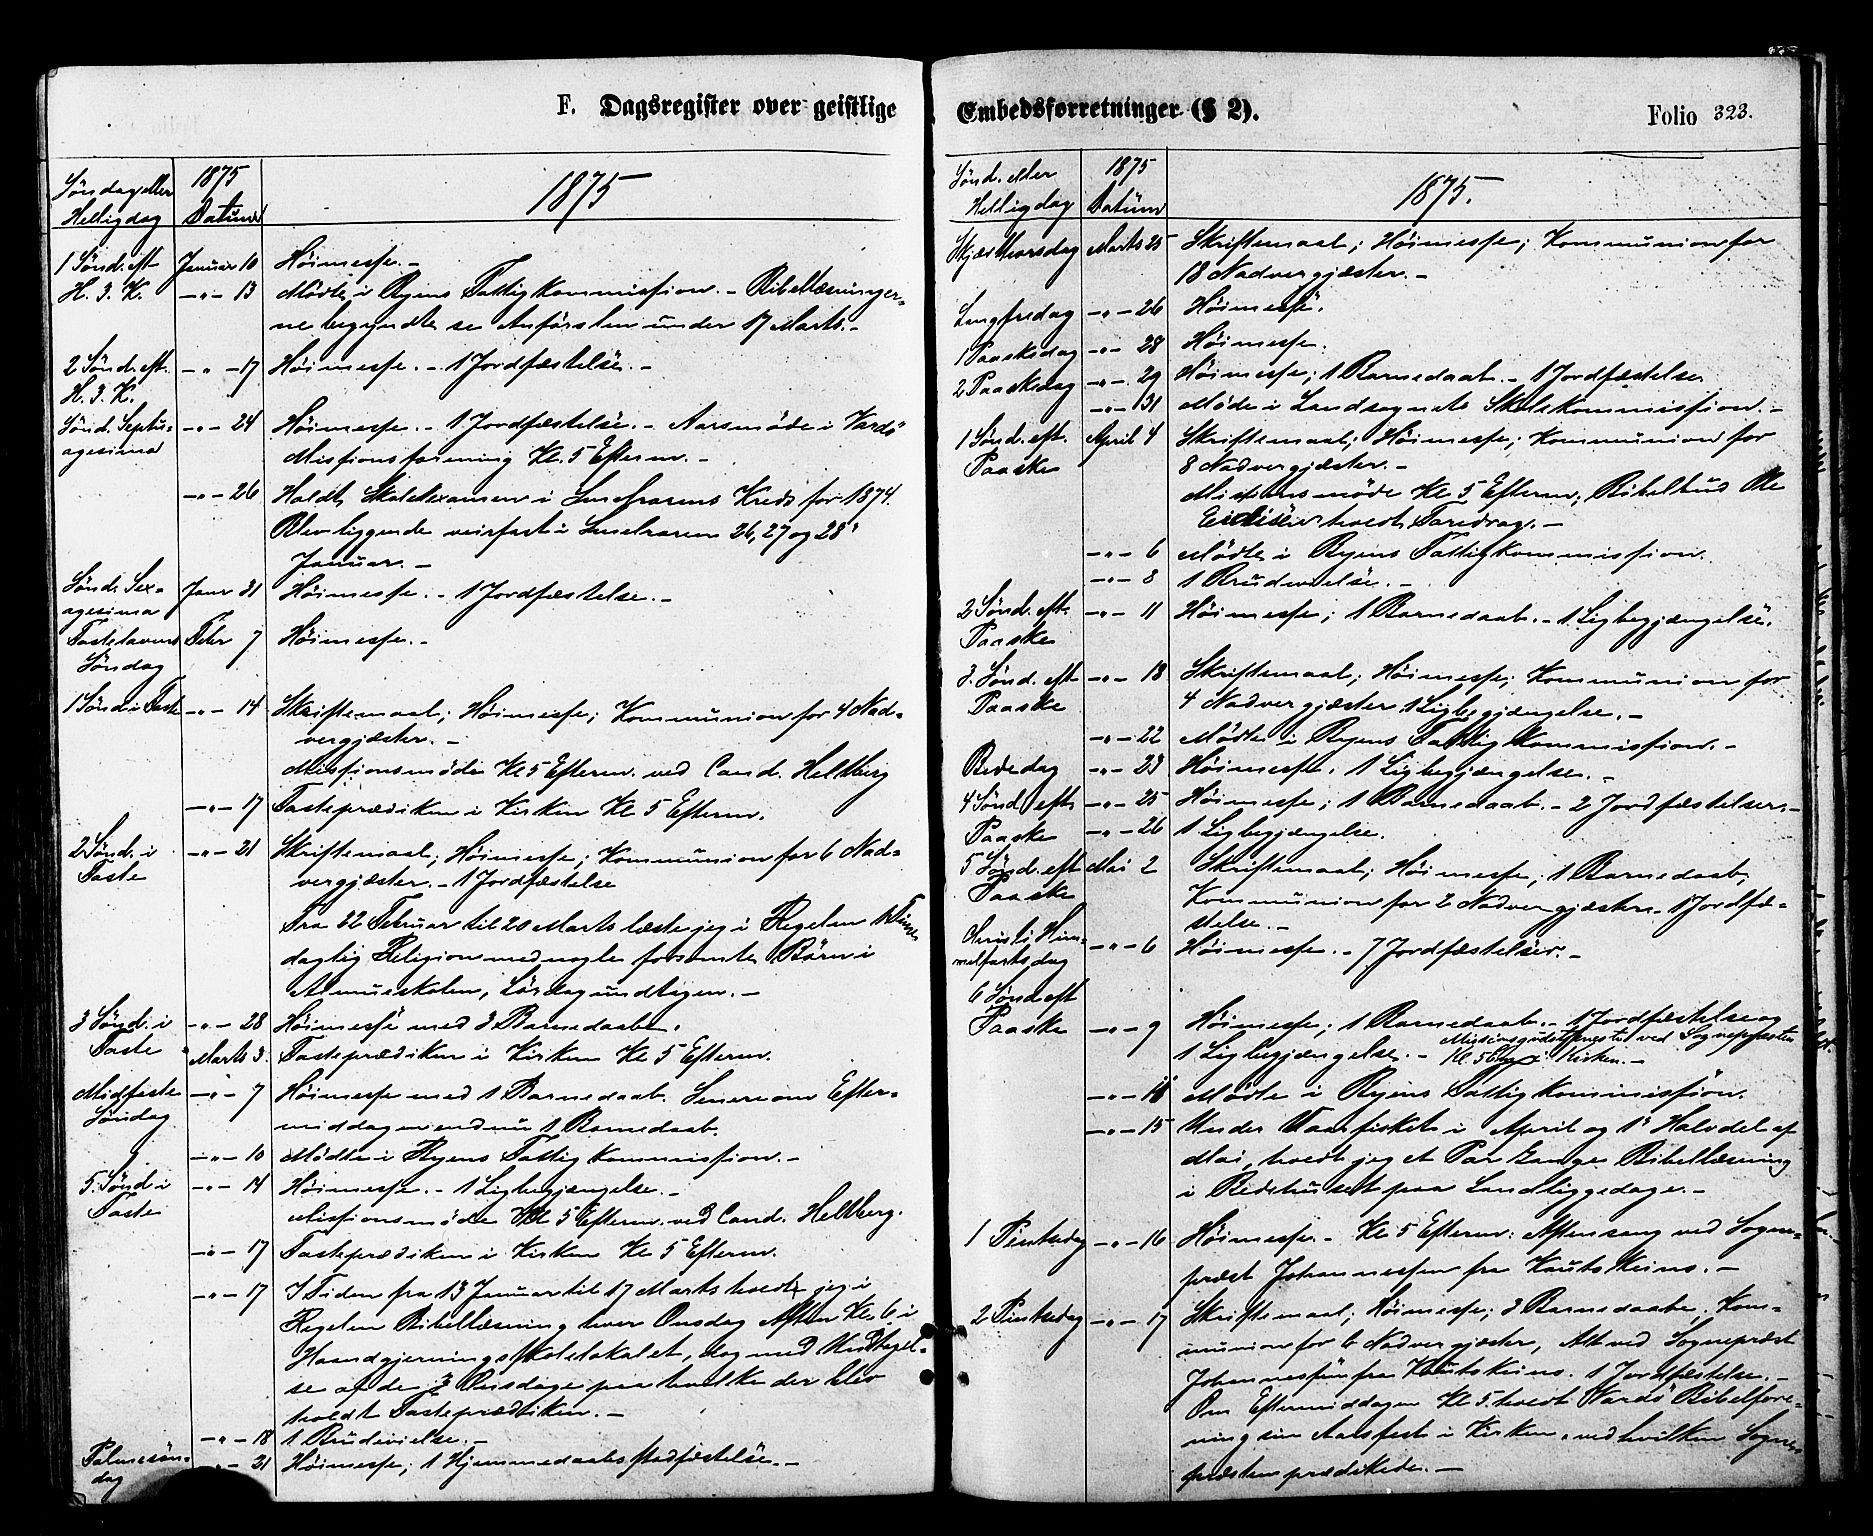 F. Dagsregister over geistlige
Søndag eller Helligdag 1875 Datum 1875
1 Sønd. eft. Januar 10 Høimesse. –
H. 3. K. –"– 13 Mødte i Byens Fattigkommission. – Bibellæsninger-
ne begyndte se Anførslen under 17 Marts. –
2 Sønd. eft. –"– 17 Høimesse. – 1 Jordfæstelse. –
H. 3. K.
Sønd. Septu- –"– 24 Høimesse. – 1 Jordfæstelse. – Aarsmøde i Vardø
agesima Missionsforening Kl. 5 Efterm. –
–"– 26 Holdt Skoleexamen i Kreds for 1874.
Blev liggende veirfast i 26, 27 og 28
Januar. –
Sønd. Sex- Janr 31 Høimesse. – 1 Jordfæstelse. –
agesima
Fastelavns Febr 7 Høimesse. –
Søndag
1 Sønd. i Faste –"– 14 Skriftemaal; Høimesse; Kommunion for 4 Nad-
vergjæster. –
Missionsmøde Kl 5 Efterm. ved Cand. Heltberg
–"– 17 Fasteprædiken i Kirken Kl 5 Efterm.
2 Sønd. i –"– 21 Skriftemaal; Høimesse; Kommunion for 6 Nad-
Faste vergjæster. – 1 Jordfæstelse
Fra 22 Februar til 20 Marts læste jeg i Regelen 1 Time
daglig Religion med nogle forsømte Børn i
Almueskolen, Lørdag undtagen. –
3 Sønd. i –"– 28 Høimesse med 3 Barnedaab.
Faste Marts 3. Fasteprædiken i Kirken Kl 5 Efterm.
Midfaste –"– 7 Høimesse med 1 Barnedaab. Senere om Efter-
Søndag middagen endnu 1 Barnedaab.
–"– 10 Mødte i Byens Fattigkommission. –
5. Sønd i –"– 14 Høimesse. – 1 Ligbegjængelse. –
Faste Missionsmøde Kl 5 Efterm. ved Cand. Heltberg.
–"– 17 Fasteprædiken i Kirken Kl 5 Efterm.
–"– 17 I Tiden fra 13 Januar til 17 Marts holdt jeg i
Regelen Bibellæsning hver Onsdag Aften Kl. 6 i
Haandgjerningsskolelokalet, dog med Undtagel-
se af de 3 Onsdage paa hvilke der blev
holdt Fasteprædiken. –
–"– 18 1 Brudevielse. –
Palmesøn- –"– 21 Høimesse; 1 Hjemmedaabsstadfæstelse. –
dag
Embedsforretninger (§ 2).
Folio 323.
Sønd. eller Helligdag 1875 Datum 1875.
Skjærthorsdag Marts 25 Skriftemaal; Høimesse; Kommunion for
18 Nadvergjæster. –
Langfredag –"– 26 Høimesse.
1 Paaskedag –"– 28 Høimesse.
2 Paaskedag –"– 29 Høimesse; 1 Barnedaab. – 1 Jordfæstelse
–"– 31 Møde i Landsognets Skolekommission. –
1 Sønd. eft. April 4 Skriftemaal; Høimesse; Kommunion for
Paaske 8 Nadvergjæster. –
Missionsmøde Kl 5 Efterm; Bibelbud Ole
holdt Foredrag. –
–"– 6 Mødte i Byens Fattigkommission.
–"– 8 1 Brudevielse. –
2 Sønd. eft. –"– 11 Høimesse; 1 Barnedaab. – 1 Ligbegjængelse.
Paaske
3. Sønd. eft –"– 18 Skriftemaal; Høimesse; Kommunion for
Paaske 4 Nadvergjæster 1 Ligbegjængelse. –
–"– 22 Mødte i Byens Fattigkommission. –
Bededag –"– 23 Høimesse. 1 Ligbegjængelse. –
4 Sønd. eft. –"– 25 Høimesse; 1 Barnedaab. – 2 Jordfæstelser. –
Paaske –"– 26 1 Ligbegjængelse.
5 Sønd. eft Mai 2 Skriftemaal; Høimesse; 1 Barnedaab;
Paaske Kommunion for 2 Nadvergjæster. 1 Jordfæ-
stelse. –
Christi Him- –"– 6 Høimesse. – 7 Jordfæstelser. –
melfartsdag
6 Sønd eft
Paaske –"– 9 Høimesse; 1 Barnedaab. – 1 Jordfæstelse og
1 Ligbegjængelse. – Missionsgudstjeneste ved Sognepræsten
Kl. 5 i Kirken. –
–"– 11 Mødte i Byens Fattigkommission.
–"– 15 Under Vaarfisket i April og 1ste Halvdel af
Mai, holdt jeg et Par Gange Bibellæsning
i Bedehuset paa Landliggedage. –
1 Pintsedag –"– 16 Høimesse. – Kl 5 Efterm: Aftensang ved Sogne-
præst Johannessen fra Kautokeino. –
2 Pintsedag –"– 17 Skriftemaal; Høimesse; 3 Barnedaab; Kom-
munion for 6 Nadvergjæster, Alt ved Sognepræst
Johannessen fra Kautokeino. 1 Jordfæstelse. –
Om Eftermiddagen Kl 5. holdt Vardø Bibelfore-
ning sin Aarsfest i Kirken, ved hvilken Sogne-
præsten prædikede. –